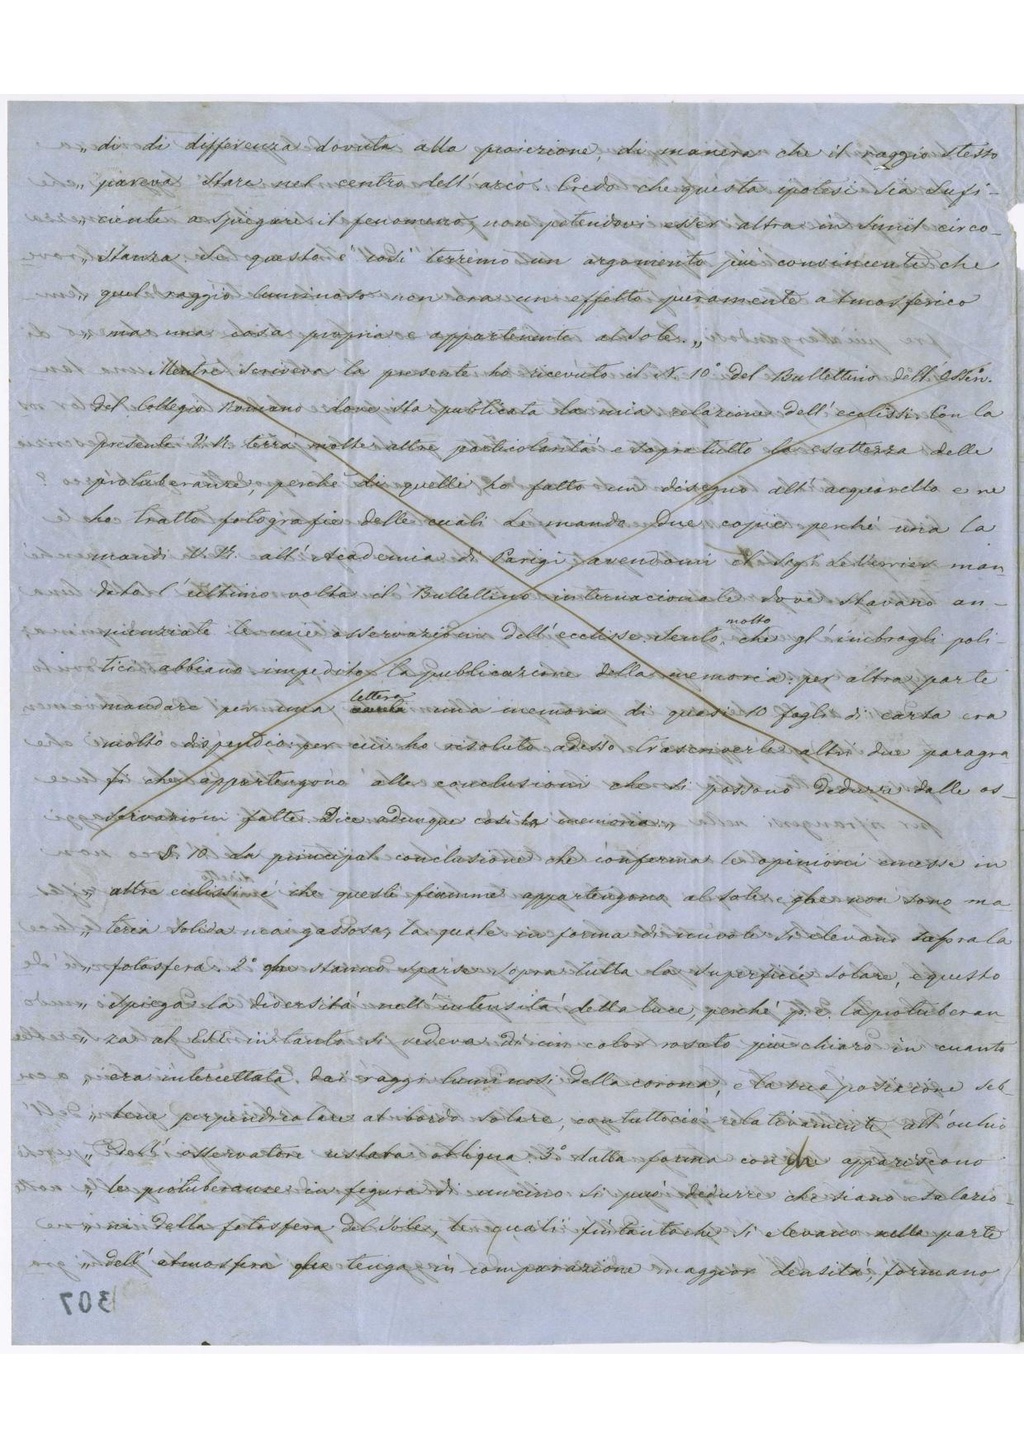 „ di di differenza dovuta alla proiezione, di manera che il raggio stesso
„ pareva stare nel centro dell'arco. Credo che questa ipotesi sia sufi-
„ ciente a spiegare il fenomeno, non potendovi esser altra in simil circo-
„ stanza. Se questo e' cosi' terremo un argomento piú consincente che
„ quel raggio luminoso non era un effetto puramente atmosferico
„ ma una cosa propria e appartenente al Sole. „
Mentre scriveva la presente ho ricevuto il N. 10° del Bullettino dell'Osserv.
del Collegio Romano dove sta publicata la mia relazione dell'ecclissi. Con la
presente V.R. terrá molte altre particolaritá e sopratutto la esattezza delle
protuberanze, perché di quelle ho fatto un disegno all'acquarello e ne
ho tratto fotografie delle cuali Le mando due copie perché una la
mandi V.R. all'Academia di Parigi avendomi il Sigr Le Verrier man-
dato l'ultimo volta il Bullettino internacionale dove stavano an-
nunziate le mie osservazioni dell'ecclisse. Sento molto che gl'imbragli poli-
tici abbiano impedito la publicazione della memoria: per altra parte
mandare per una lettera una memoria di quasi 10 fogli di carta era
molto dispendio: per cui ho risoluto adesso trascriverle altri due paragra
fi che appartengono alle conclusioni che si possono dedurre dalle os-
servazioni fatte. Dice adunque cosi la memoria: „
§. 10. La principal conclusione che conferma le opinioni emesse in
„ altre eclissi é che queste fiamme appartengono al sole, che non sono ma-
„ teria solida ma gassosa, la quale in forma di nuvole si elevano sopra la
„ fotosfera. 2° che stanno sparse sopra tutta la superficie solare, e questo
„ spiega la diversitá nell'intensitá della luce, perché p. e. la protuberan-
„ za al ESE in tanto si vedeva di un color rosato piu chiaro in cuanto
„ era intercettata dai raggi luminosi della corona, e la sua posizione seb-
„ bene perpendicolare al bordo solare, contuttoció relativamente all'ochio
„ dell'osservatore restava obliqua. 3° dalla forma con che appariscono
„ le protuberanze in figura di uncino si puó dedurre che siano esalazio-
„ ni della fotosfera del Sole, le quali fintantoche si elevano nella parte
„ dell'atmosfera che tenga in comparazione maggior densitá, formano
307